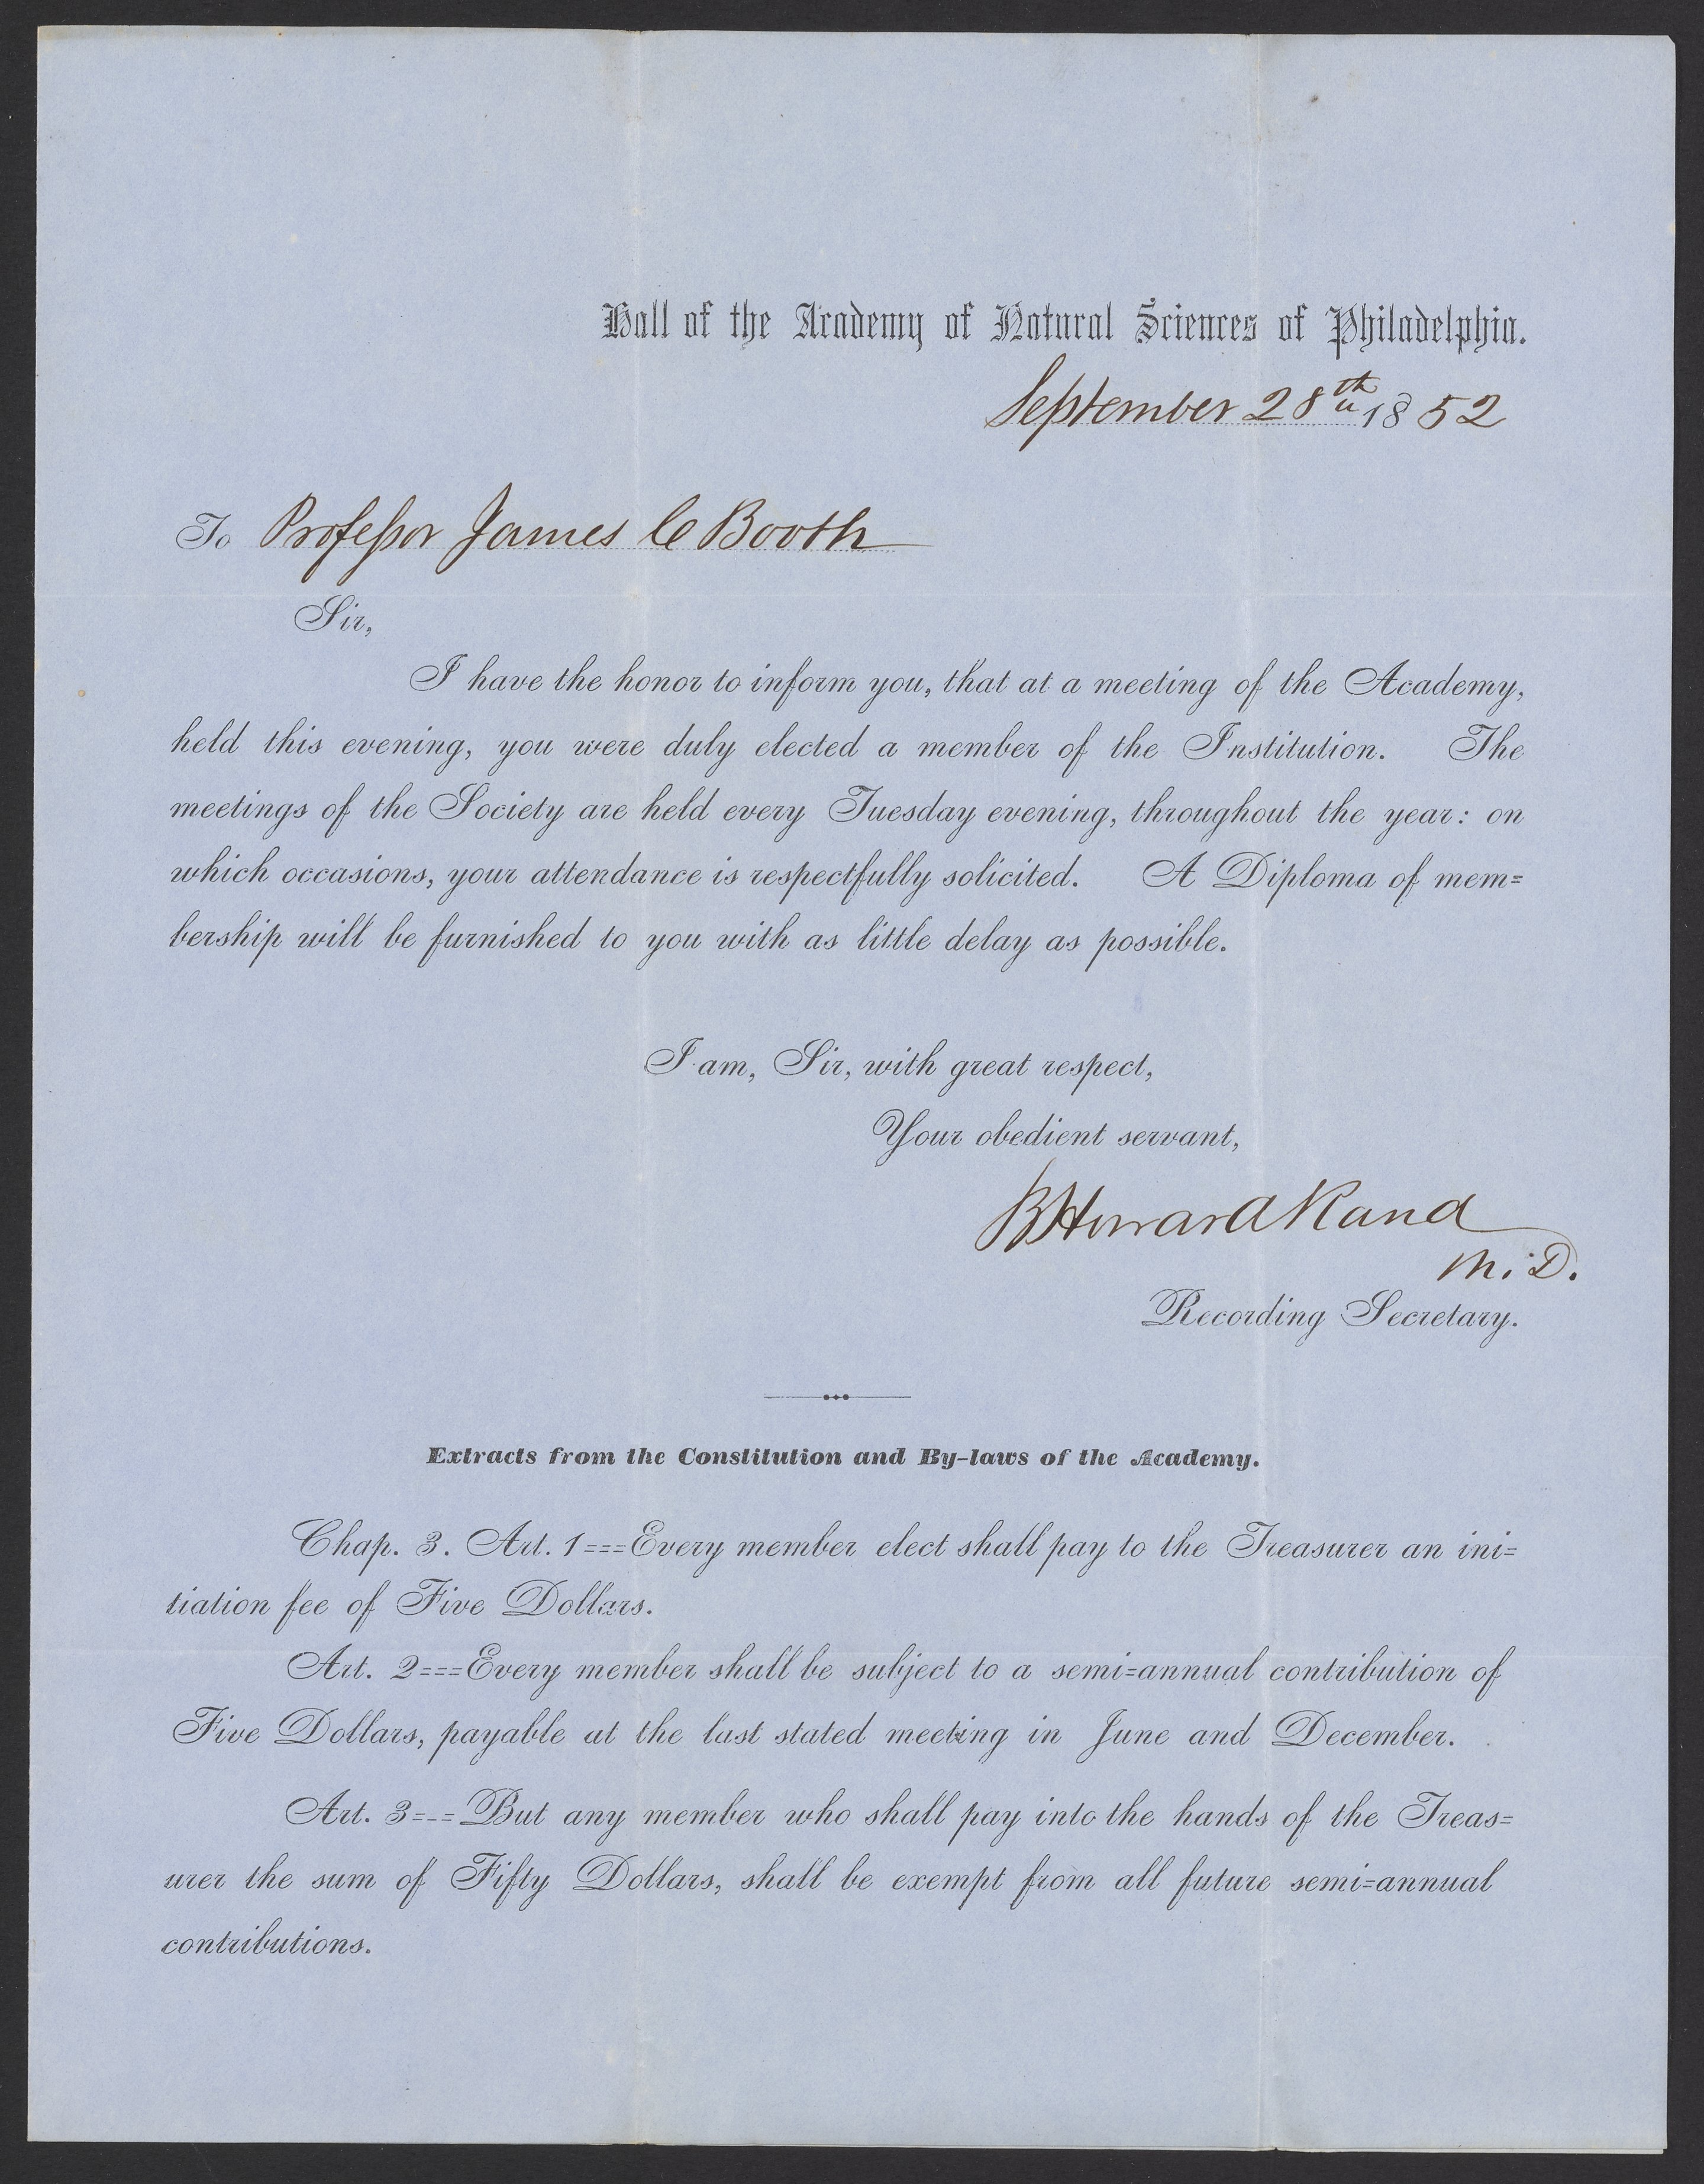 Hall of the Academy of Natural Sciences of Philadelphia.
September 28th 1852
To Professor James C Booth
Sir,
I have the honor to inform you, that at a meeting of the Academy,
held this evening, you were duly elected a member of the Institution. The
meetings of the Society are held every Tuesday evening, throughout the year: on
which occasions, your attendance is respectfully solicited. A Diploma of mem=
bership will be furnished to you with as little delay as possible.
I am, Sir, with great respect,
Your obedient servant,
B Howard Rand
M.D.
Recording Secretary.
Extracts from the Constitution and By-laws of the Academy.
Chap. 3. Art. 1===Every member elect shall pay to the Treasurer an ini=
tiation fee of Five Dollars.
Art. 2===Every member shall be subject to a semi=annual contribution of
Five Dollars, payable at the last stated meeting in June and December.
Art. 3=-=But any member who shall pay into the hands of the Treas=
urer the sum of Fifty Dollars, shall be exempt from all future semi=annual
contributions.